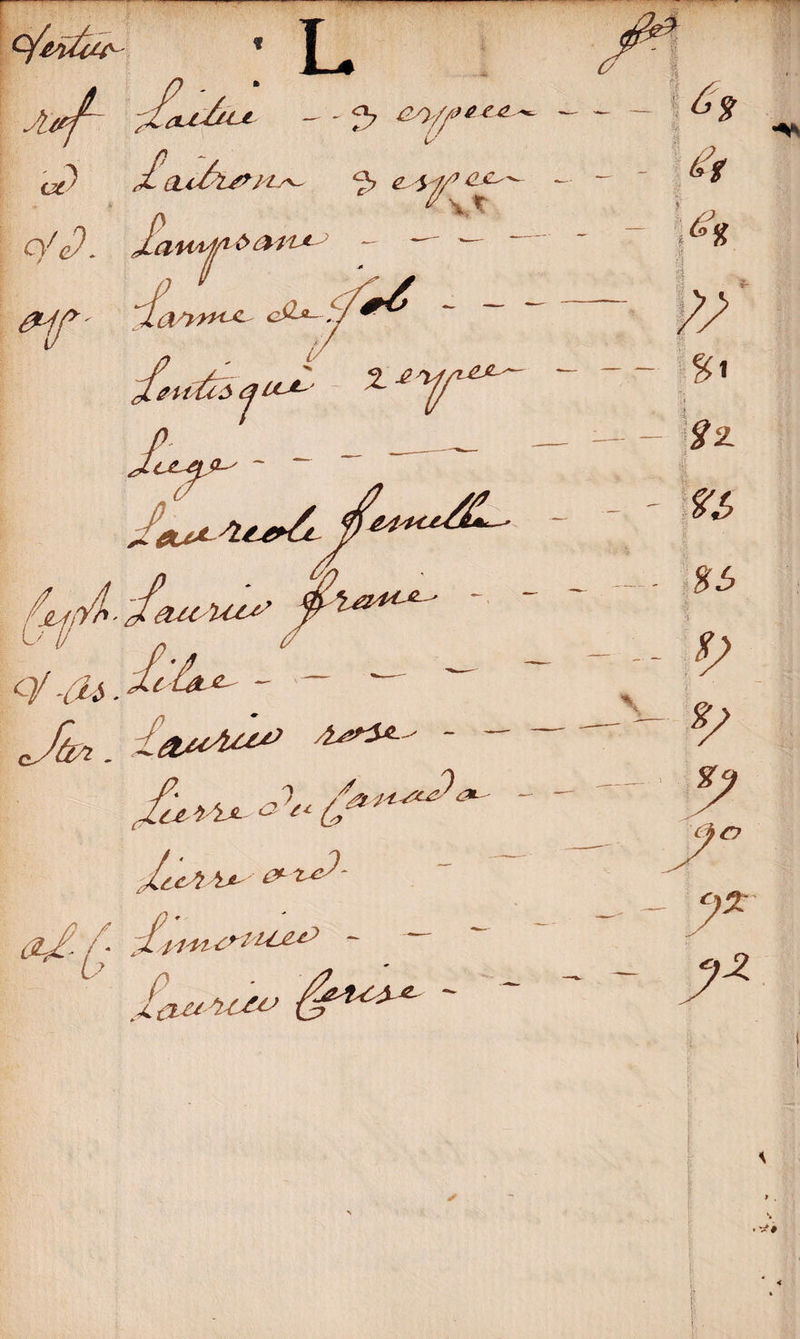 Vertus L fo
Raf Laitue - - 3 especes - - - 68
ad Laitrons 3 especes - - - 68
Vd. Lampsane - - - - - - 68
ap. Larme de Job - - - - 77
Lentisque 2 especes - - - 81
Liege - - - - - - 82
Laureole femelle - - - 85
Ceph. Laurier franc - - - - 85
V-as. Lilac - - - - - - - 87
Ster. Laurier rose - - - - - 87
Lierre du Canada - - - 89
Lierre ard. - - - 90
al. C. Limonier - - - - - - 92
Laurier Cerise - - - - - 92